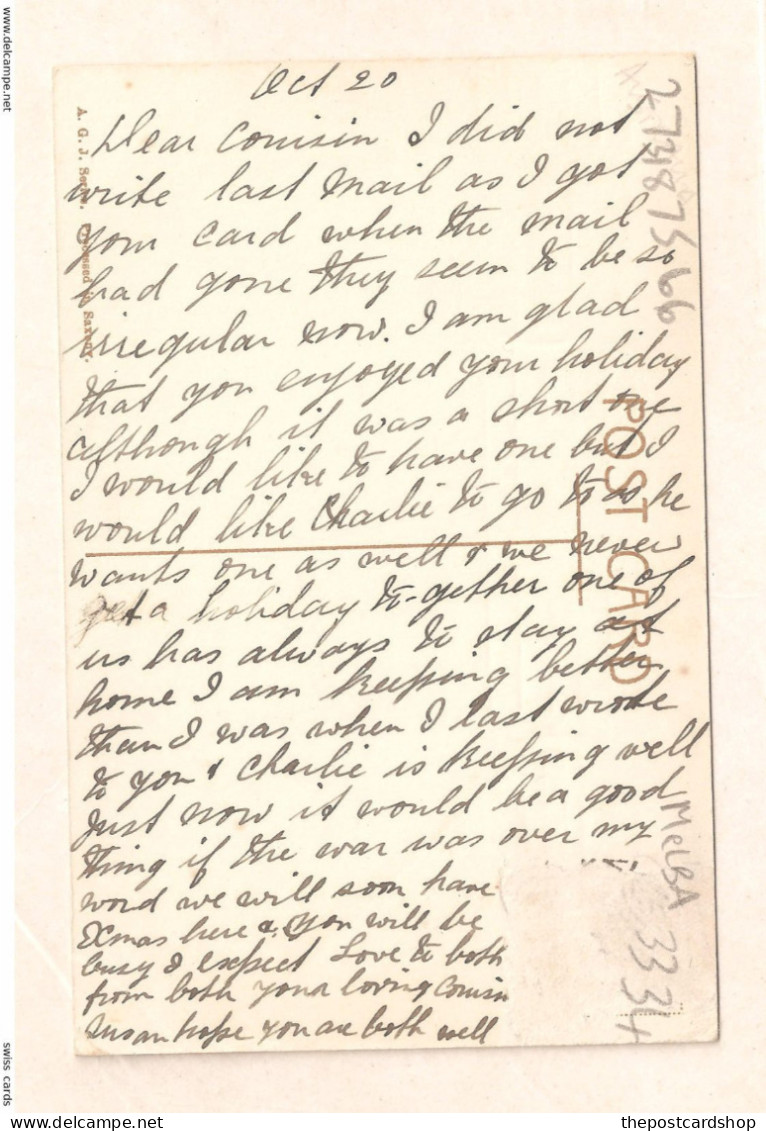 Oct 20
Dear Cousin I did not
write last mail as I got
your card when the mail
had gone they seem to be so
irregular now. I am glad
that you enjoyed your holiday
although it was a short one
I would like to have one but I
would like Charlie to go to as he
wants one as well & we never
get a holiday to-gether one of
us has always to stay at
home I am keeping better
than I was when I last wrote
to you & Charlie is keeping well
just now it would be a good
thing if the war was over my
word we will soon have
Xmas here & you will be
busy I expect Love to both
from both your loving Cousin
Susan hope you are both well
POST CARD
A. G. J. Processed in Saxony.
MelBA
3334
www.delcampe.net
swiss cards
www.delcampe.net
thepostcardshop